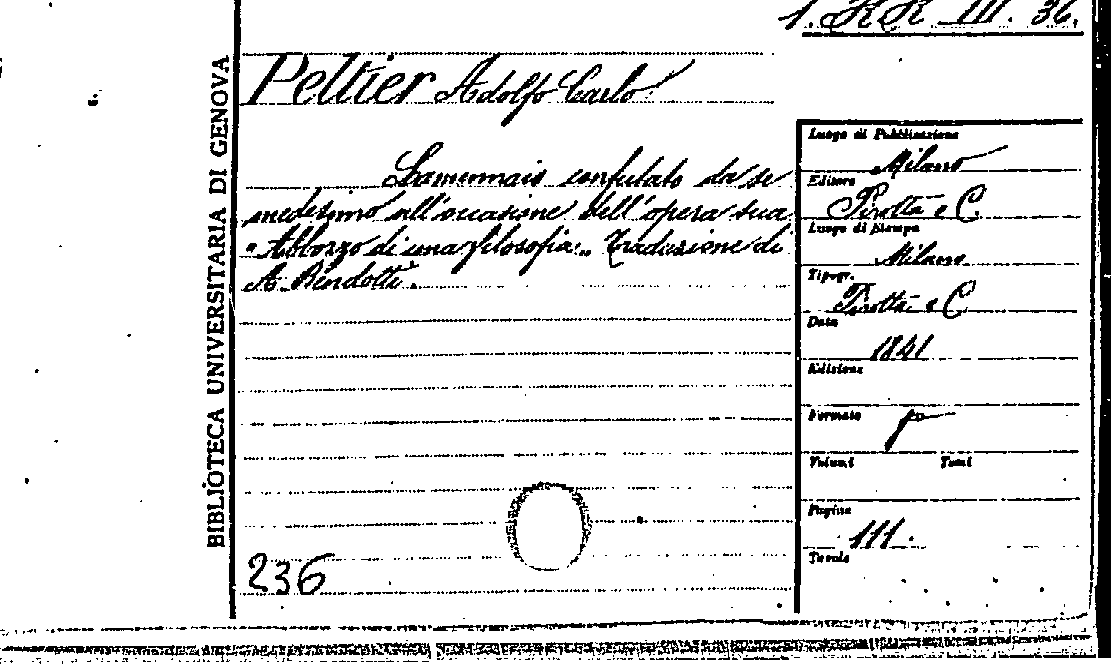 1. KK III. 36.
Peltier Adolfo Carlo
Lamennais confutato da se
medesimo all'occasione dell'opera sua
"Abbozzo di una filosofia". Traduzione di
A. Bendotti.
236
BIBLIOTECA UNIVERSITARIA DI GENOVA
Luogo di Pubblicazione
Milano
Editore
Pirotta e C.
Luogo di Stampa
Milano
Tipogr.
Pirotta e C
Data
1841
Edizione
Formato
Volumi Tomi
Pagine
111.
Tavole